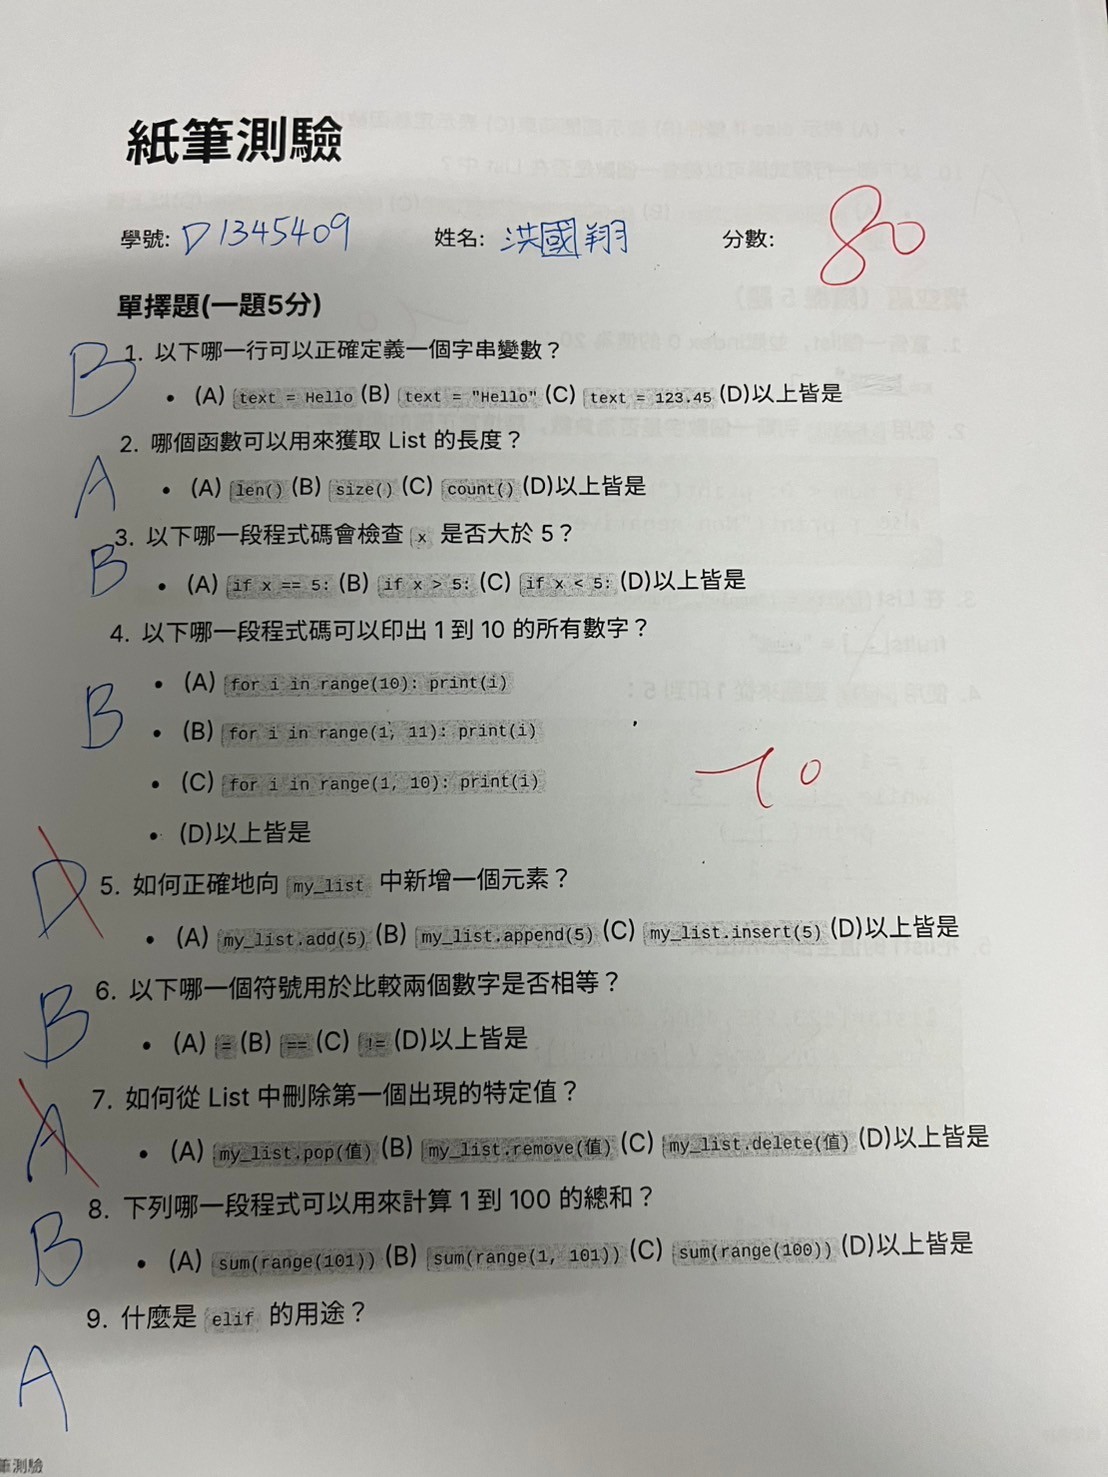 紙筆測驗
學號: D1345409 姓名: 洪國翔 分數: 80
單擇題(一題5分)
B 1. 以下哪一行可以正確定義一個字串變數？
• (A) text = Hello (B) text = "Hello" (C) text = 123.45 (D)以上皆是
A 2. 哪個函數可以用來獲取 List 的長度？
• (A) len() (B) size() (C) count() (D)以上皆是
B 3. 以下哪一段程式碼會檢查 x 是否大於 5？
• (A) if x == 5: (B) if x > 5: (C) if x < 5: (D)以上皆是
B 4. 以下哪一段程式碼可以印出 1 到 10 的所有數字？
• (A) for i in range(10): print(i)
• (B) for i in range(1, 11): print(i)
• (C) for i in range(1, 10): print(i)
-10
• (D)以上皆是
D 5. 如何正確地向 my_list 中新增一個元素？
• (A) my_list.add(5) (B) my_list.append(5) (C) my_list.insert(5) (D)以上皆是
B 6. 以下哪一個符號用於比較兩個數字是否相等？
• (A) = (B) == (C) != (D)以上皆是
A 7. 如何從 List 中刪除第一個出現的特定值？
• (A) my_list.pop(值) (B) my_list.remove(值) (C) my_list.delete(值) (D)以上皆是
B 8. 下列哪一段程式可以用來計算 1 到 100 的總和？
• (A) sum(range(101)) (B) sum(range(1, 101)) (C) sum(range(100)) (D)以上皆是
A 9. 什麼是 elif 的用途？
筆測驗